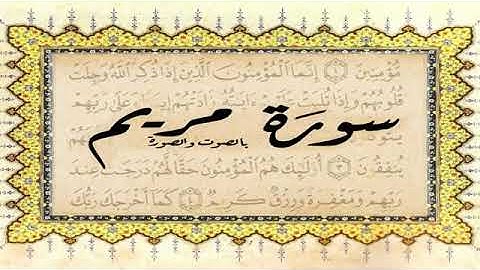 سورة مريم
بالصوت والصورة
مُّؤْمِنِينَ ۝ إِنَّمَا ٱلْمُؤْمِنُونَ ٱلَّذِينَ إِذَا ذُكِرَ ٱللَّهُ وَجِلَتْ
قُلُوبُهُمْ وَإِذَا تُلِيَتْ عَلَيْهِمْ ءَايَٰتُهُۥ زَادَتْهُمْ إِيمَٰنًا وَعَلَىٰ رَبِّهِمْ
يُنفِقُونَ ۝ أُو۟لَٰٓئِكَ هُمُ ٱلْمُؤْمِنُونَ حَقًّا لَّهُمْ دَرَجَٰتٌ عِندَ
رَبِّهِمْ وَمَغْفِرَةٌ وَرِزْقٌ كَرِيمٌ ۝ كَمَآ أَخْرَجَكَ رَبُّكَ